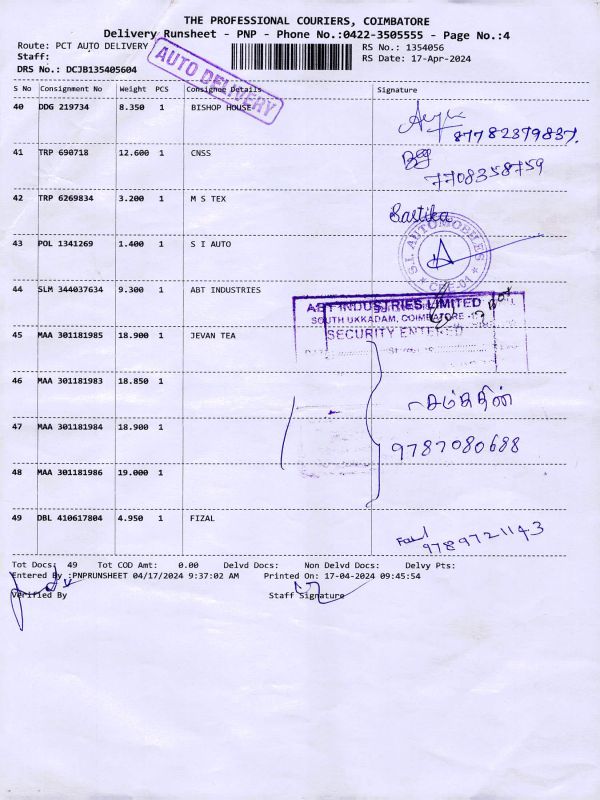 THE PROFESSIONAL COURIERS, COIMBATORE
Delivery Runsheet - PNP - Phone No.:0422-3505555 - Page No.:4
Route: PCT AUTO DELIVERY
RS No.: 1354056
Staff:
RS Date: 17-Apr-2024
DRS No.: DCJB135405604
AUTO DELIVERY
S No Consignment No Weight PCS Consignee Details Signature
40 DDG 219734 8.350 1 BISHOP HOUSE
87782379837.
41 TRP 690718 12.600 1 CNSS
7708358759
42 TRP 6269834 3.200 1 M S TEX
Bastika
43 POL 1341269 1.400 1 S I AUTO
S.I. AUTOMOBILES
44 SLM 344037634 9.300 1 ABT INDUSTRIES
ABT INDUSTRIES LIMITED
SOUTH UKKADAM, COIMBATORE -1
SECURITY ENTERED
45 MAA 301181985 18.900 1 JEVAN TEA
46 MAA 301181983 18.850 1
47 MAA 301181984 18.900 1
9787080688
48 MAA 301181986 19.000 1
49 DBL 410617804 4.950 1 FIZAL
9789721143
Tot Docs: 49 Tot COD Amt: 0.00 Delvd Docs: Non Delvd Docs: Delvy Pts:
Entered By :PNPRUNSHEET 04/17/2024 9:37:02 AM Printed On: 17-04-2024 09:45:54
Verified By Staff Signature